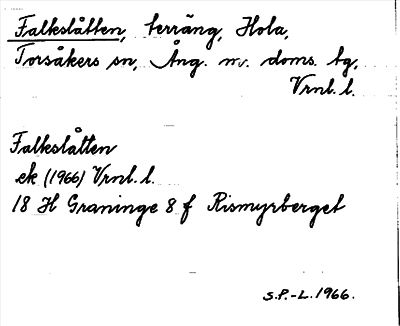 Falkslåtten, terräng, Hola,
Torsåkers sn, Ång. m. doms. tg,
Vrnl. l.
Falkslåtten
ek (1966) Vrnl. l.
18 H Graninge 8 f Rismyrberget
S.P.-L. 1966.